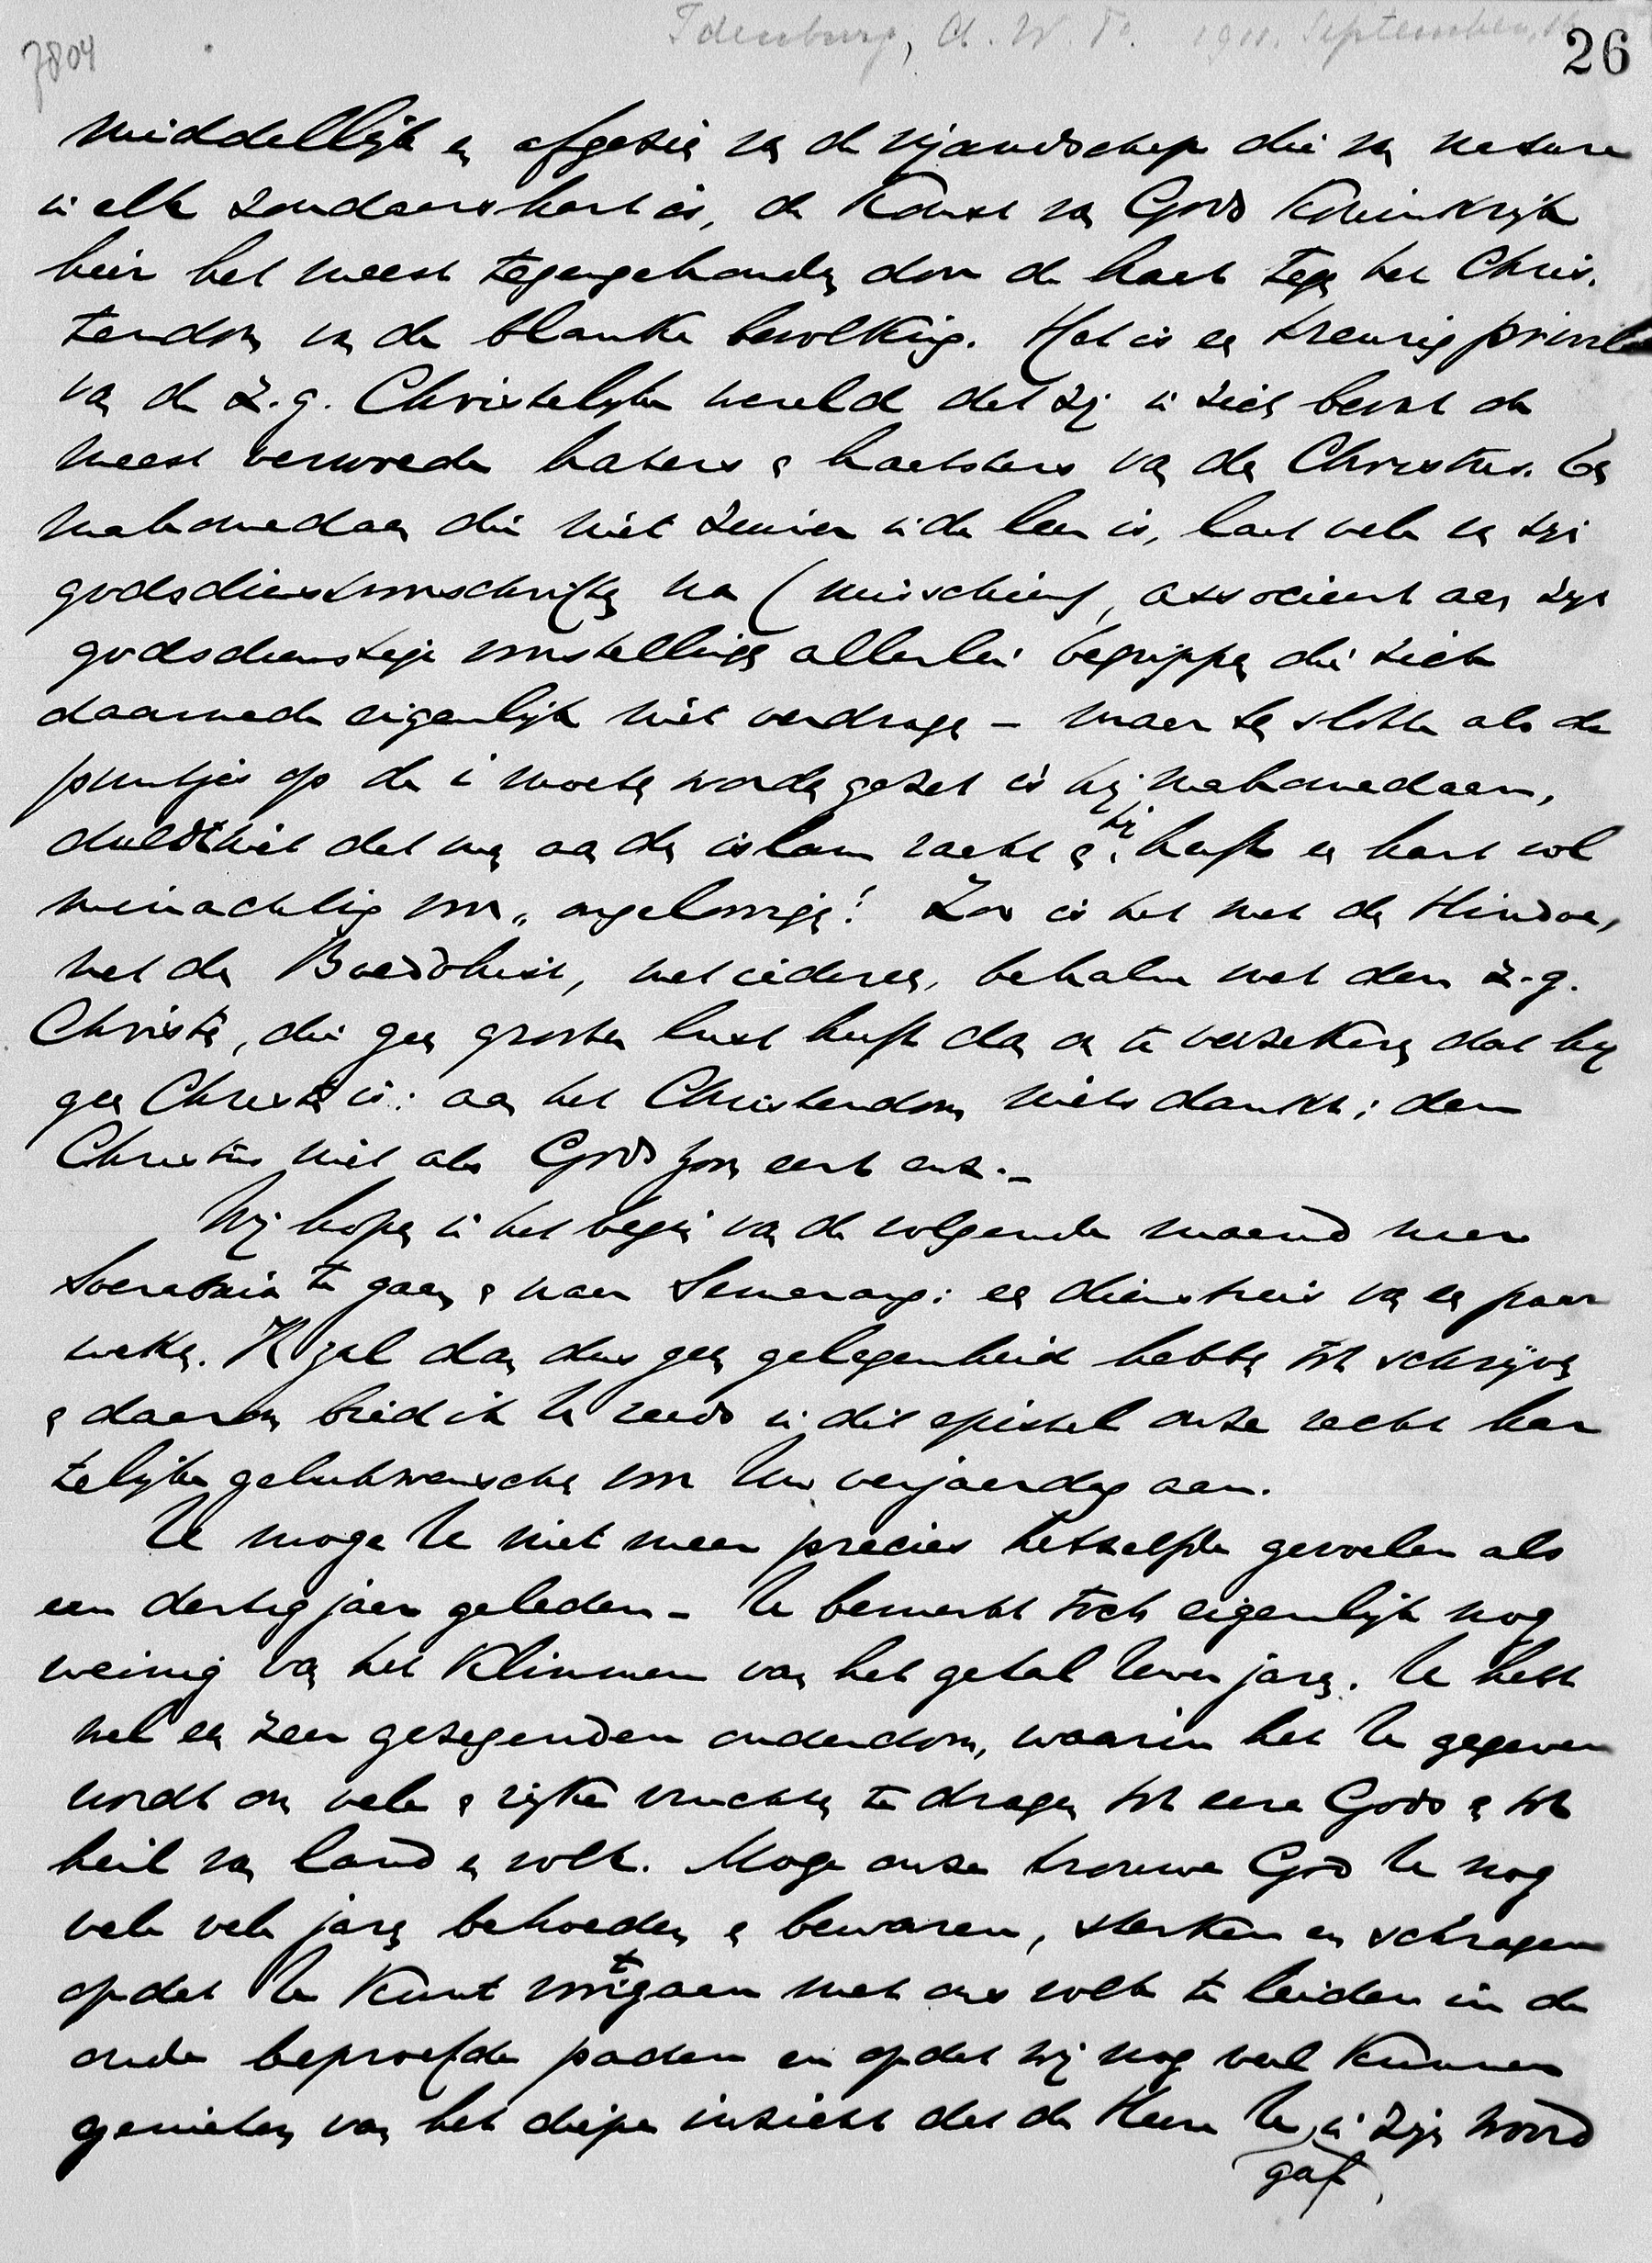 7804
Idenburg, A. W. F. 1911. September,
26
middellijk en afgezien van de vijandschap die van nature
in elk zondaarshart is, de komst van Gods Koninkrijk
hier het meest tegengehouden door de haat tegen het Chris-
tendom van de blanke bevolking. Het is een treurig privile
van de z.g. Christelijke wereld dat zij in zich bevat de
meest verwoede haters en haatsters van den Christus. Een
mahomedaan die niet zuiver in de leer is, laat vele van zijn
godsdienstvoorschriften na (misschien), associeert aan zijn
godsdienstige voorstellingen allerlei begrippen die zich
daarmede eigenlijk niet verdragen – maar ten slotte als de
puntjes op de i moeten worden gezet is hij mahomedaan,
duldt niet dat men aan den islam raakt en hij heeft een hart vol
minachting voor „ongeloovigen! Zoo is het met den Hindoe,
met den Boeddhist, met iederen, behalve met den z.g.
Christen, die geen grooter lust heeft dan om te verzekeren dat hij
geen Christen is: aan het Christendom niets dankt; den
Christus niet als Gods zoon eert enz. –
Wij hopen in het begin van de volgende maand naar
Soerabaia te gaan en naar Semarang: een dienstreis van een paar
weken. Ik zal dan dus geen gelegenheid hebben tot schrijven
en daarom bied ik U reeds in dit epistel onze recht har
telijke gelukwenschen voor Uw verjaardag aan.
U moge U niet meer precies hetzelfde gevoelen als
een dertig jaar geleden – U bemerkt toch eigenlijk nog
weinig van het klimmen van het getal Uwer jaren. U hebt
wel een zeer gezegenden ouderdom, waarin het U gegeven
wordt om vele en rijke vruchten te dragen tot eere Gods en tot
heil van land en volk. Moge onze trouwe God U nog
vele vele jaren behoeden en bewaren, sterken en schragen
opdat U kunt voortgaan met ons volk te leiden in de
oude beproefde paden en opdat wij nog veel kunnen
genieten van het diepe inzicht dat de Heere U in Zijn Woord
gaf,